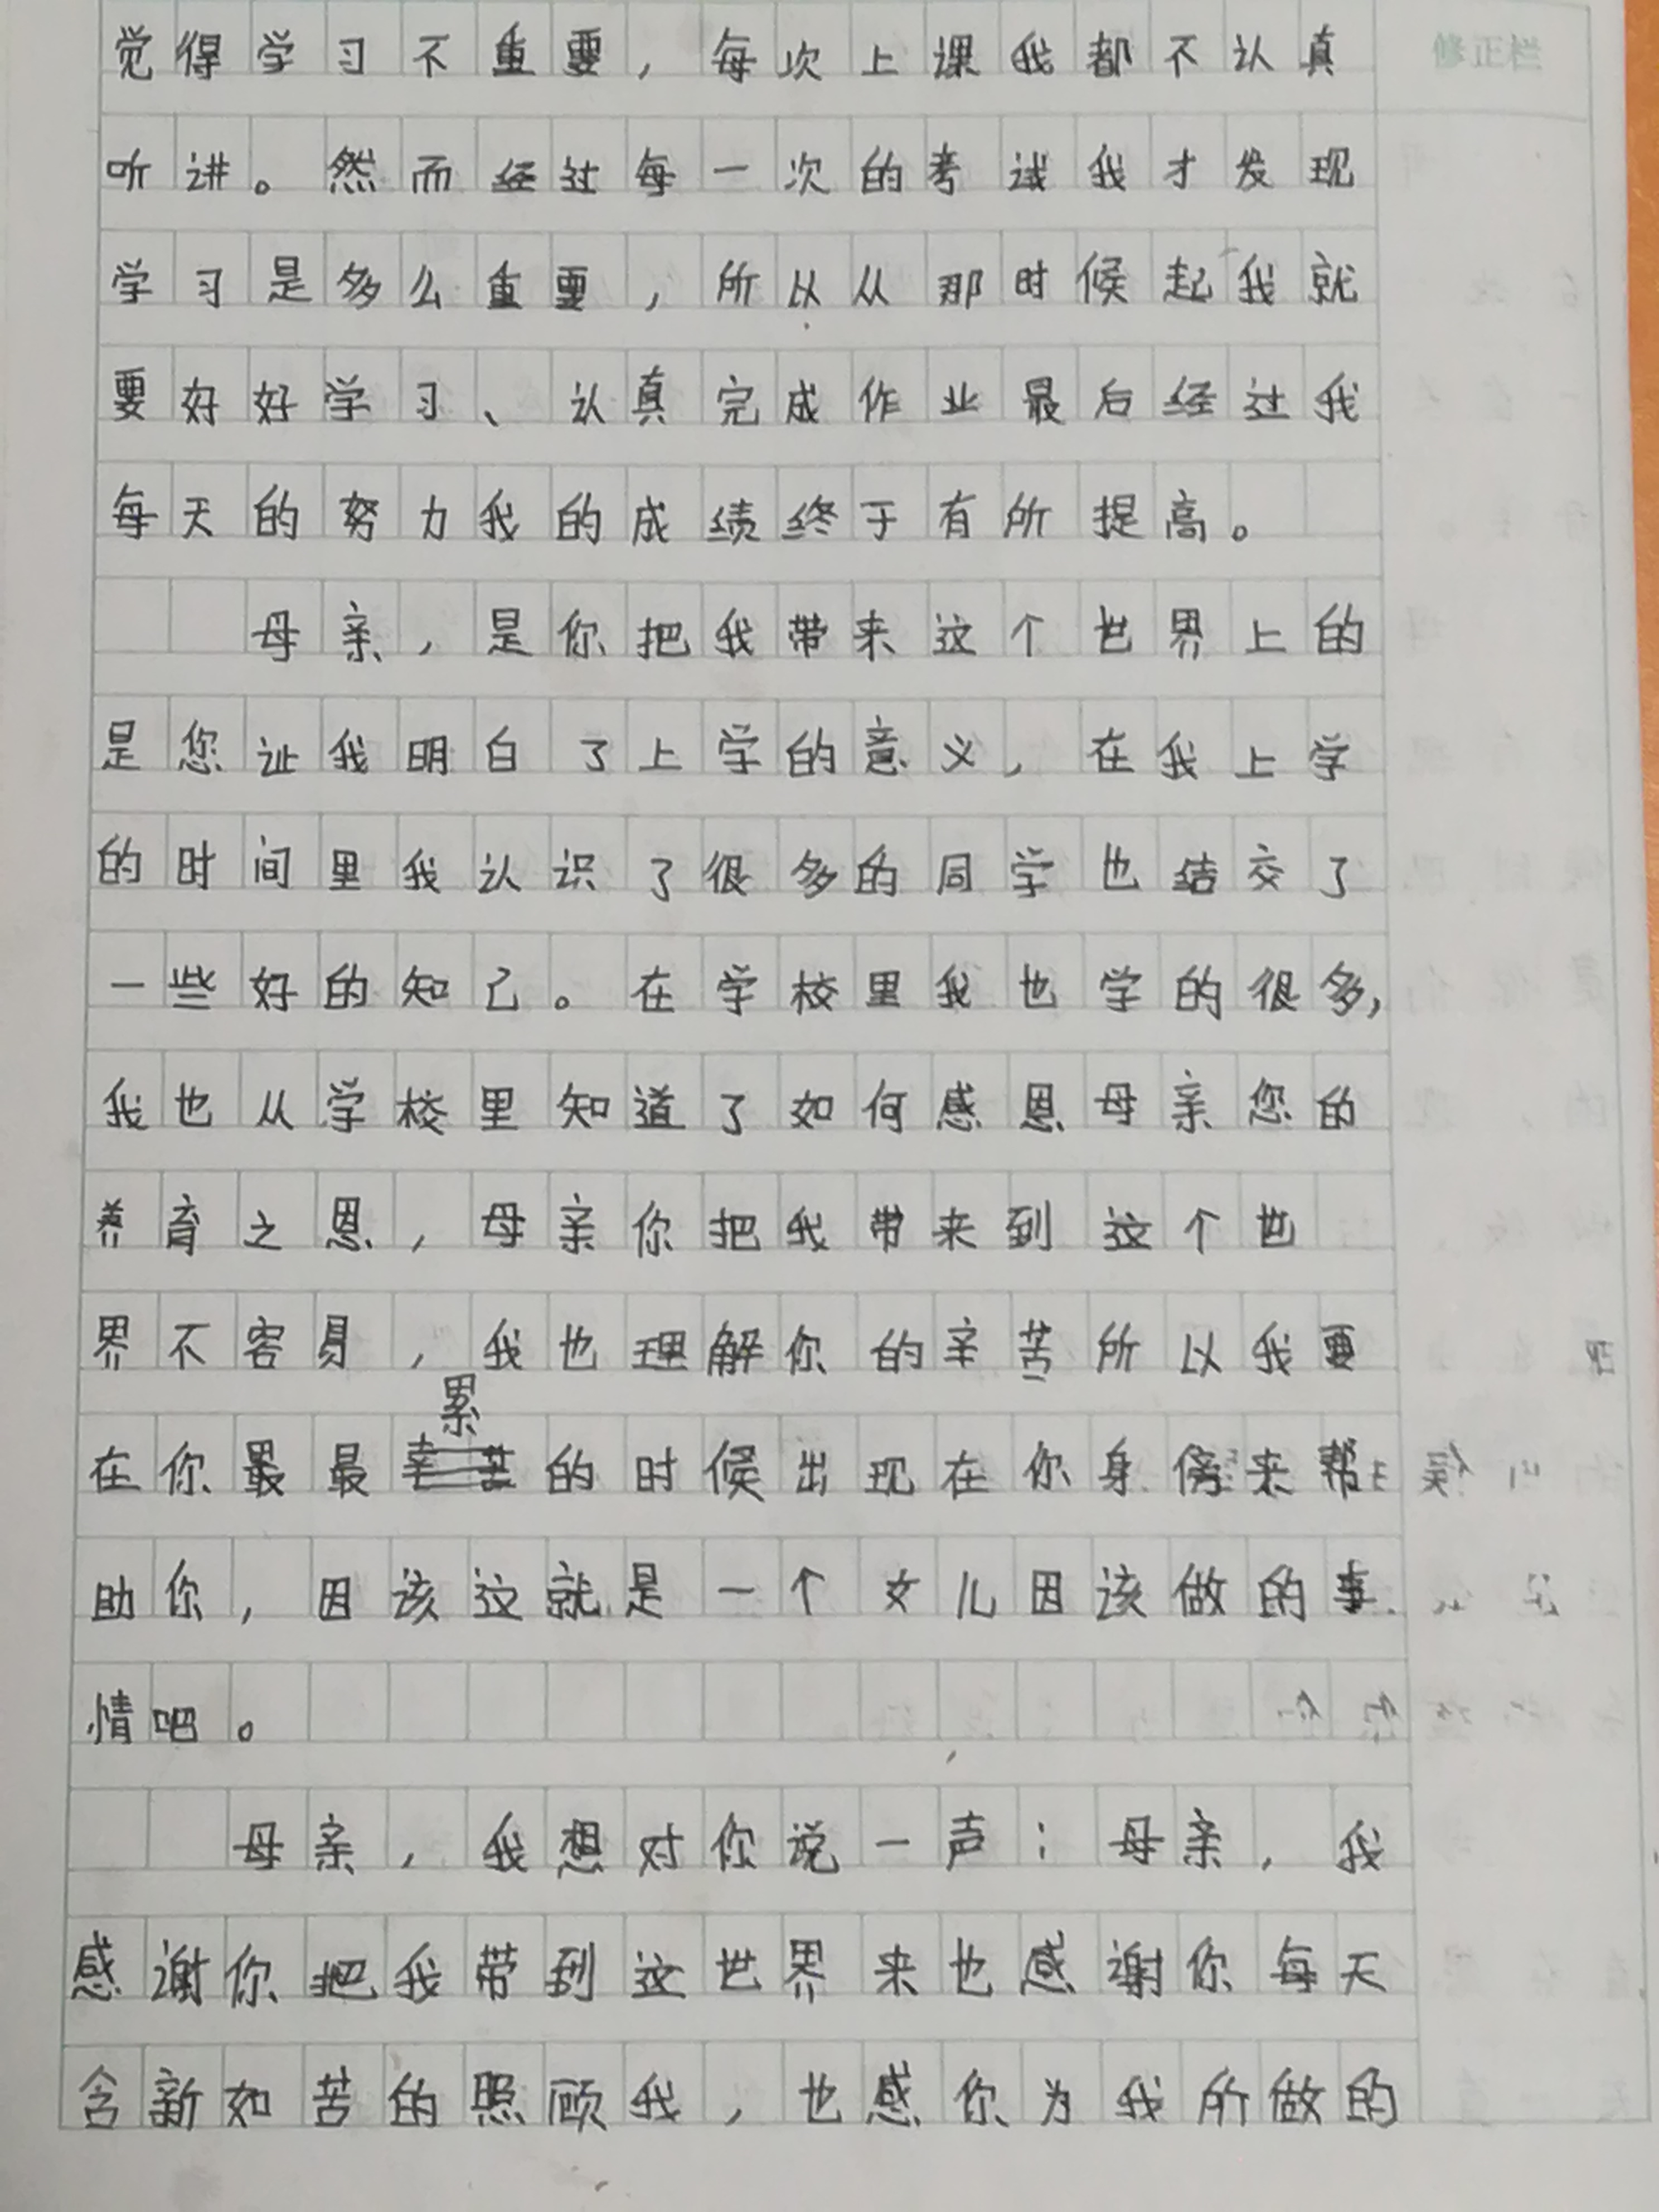 觉得学习不重要，每次上课我都不认真
修正栏
听讲。然而经过每一次的考试我才发现
学习是多么重要，所以从那时候起我就
要好好学习、认真完成作业最后经过我
每天的努力我的成绩终于有所提高。
母亲，是你把我带来这个世界上的
是您让我明白了上学的意义，在我上学
的时间里我认识了很多的同学也结交了
一些好的知己。在学校里我也学的很多，
我也从学校里知道了如何感恩母亲您的
养育之恩，母亲你把我带来到这个世
界不容易，我也理解你的辛苦所以我要
累
在你最最的时候出现在你身傍来帮
助你，因该这就是一个女儿因该做的事
情吧。
母亲，我想对你说一声：母亲，我
感谢你把我带到这世界来也感谢你每天
含新如苦的照顾我，也感你为我所做的